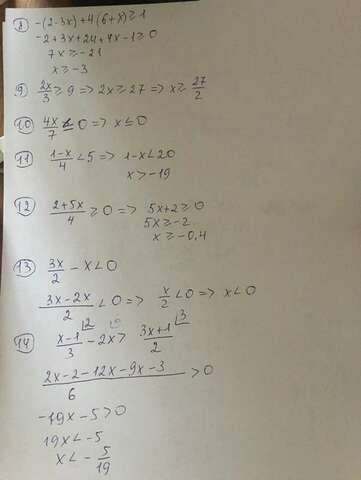 8) -(2-3x)+4(6+x)≥1
-2+3x+24+4x-1≥0
7x≥-21
x≥-3
9) 2x/3 ≥ 9 => 2x≥27 => x≥ 27/2
10) 4x/7 ≤ 0 => x≤0
11) 1-x/4 < 5 => 1-x<20
x>-19
12) 2+5x/4 ≥ 0 => 5x+2≥0
5x≥-2
x≥-0,4
13) 3x/2 - x<0
3x-2x/2 < 0 => x/2 < 0 => x<0
14) x-1/3 |2 - 2x > 3x+1/2 |3
2x-2-12x-9x-3/6 > 0
-19x-5>0
19x<-5
x< - 5/19